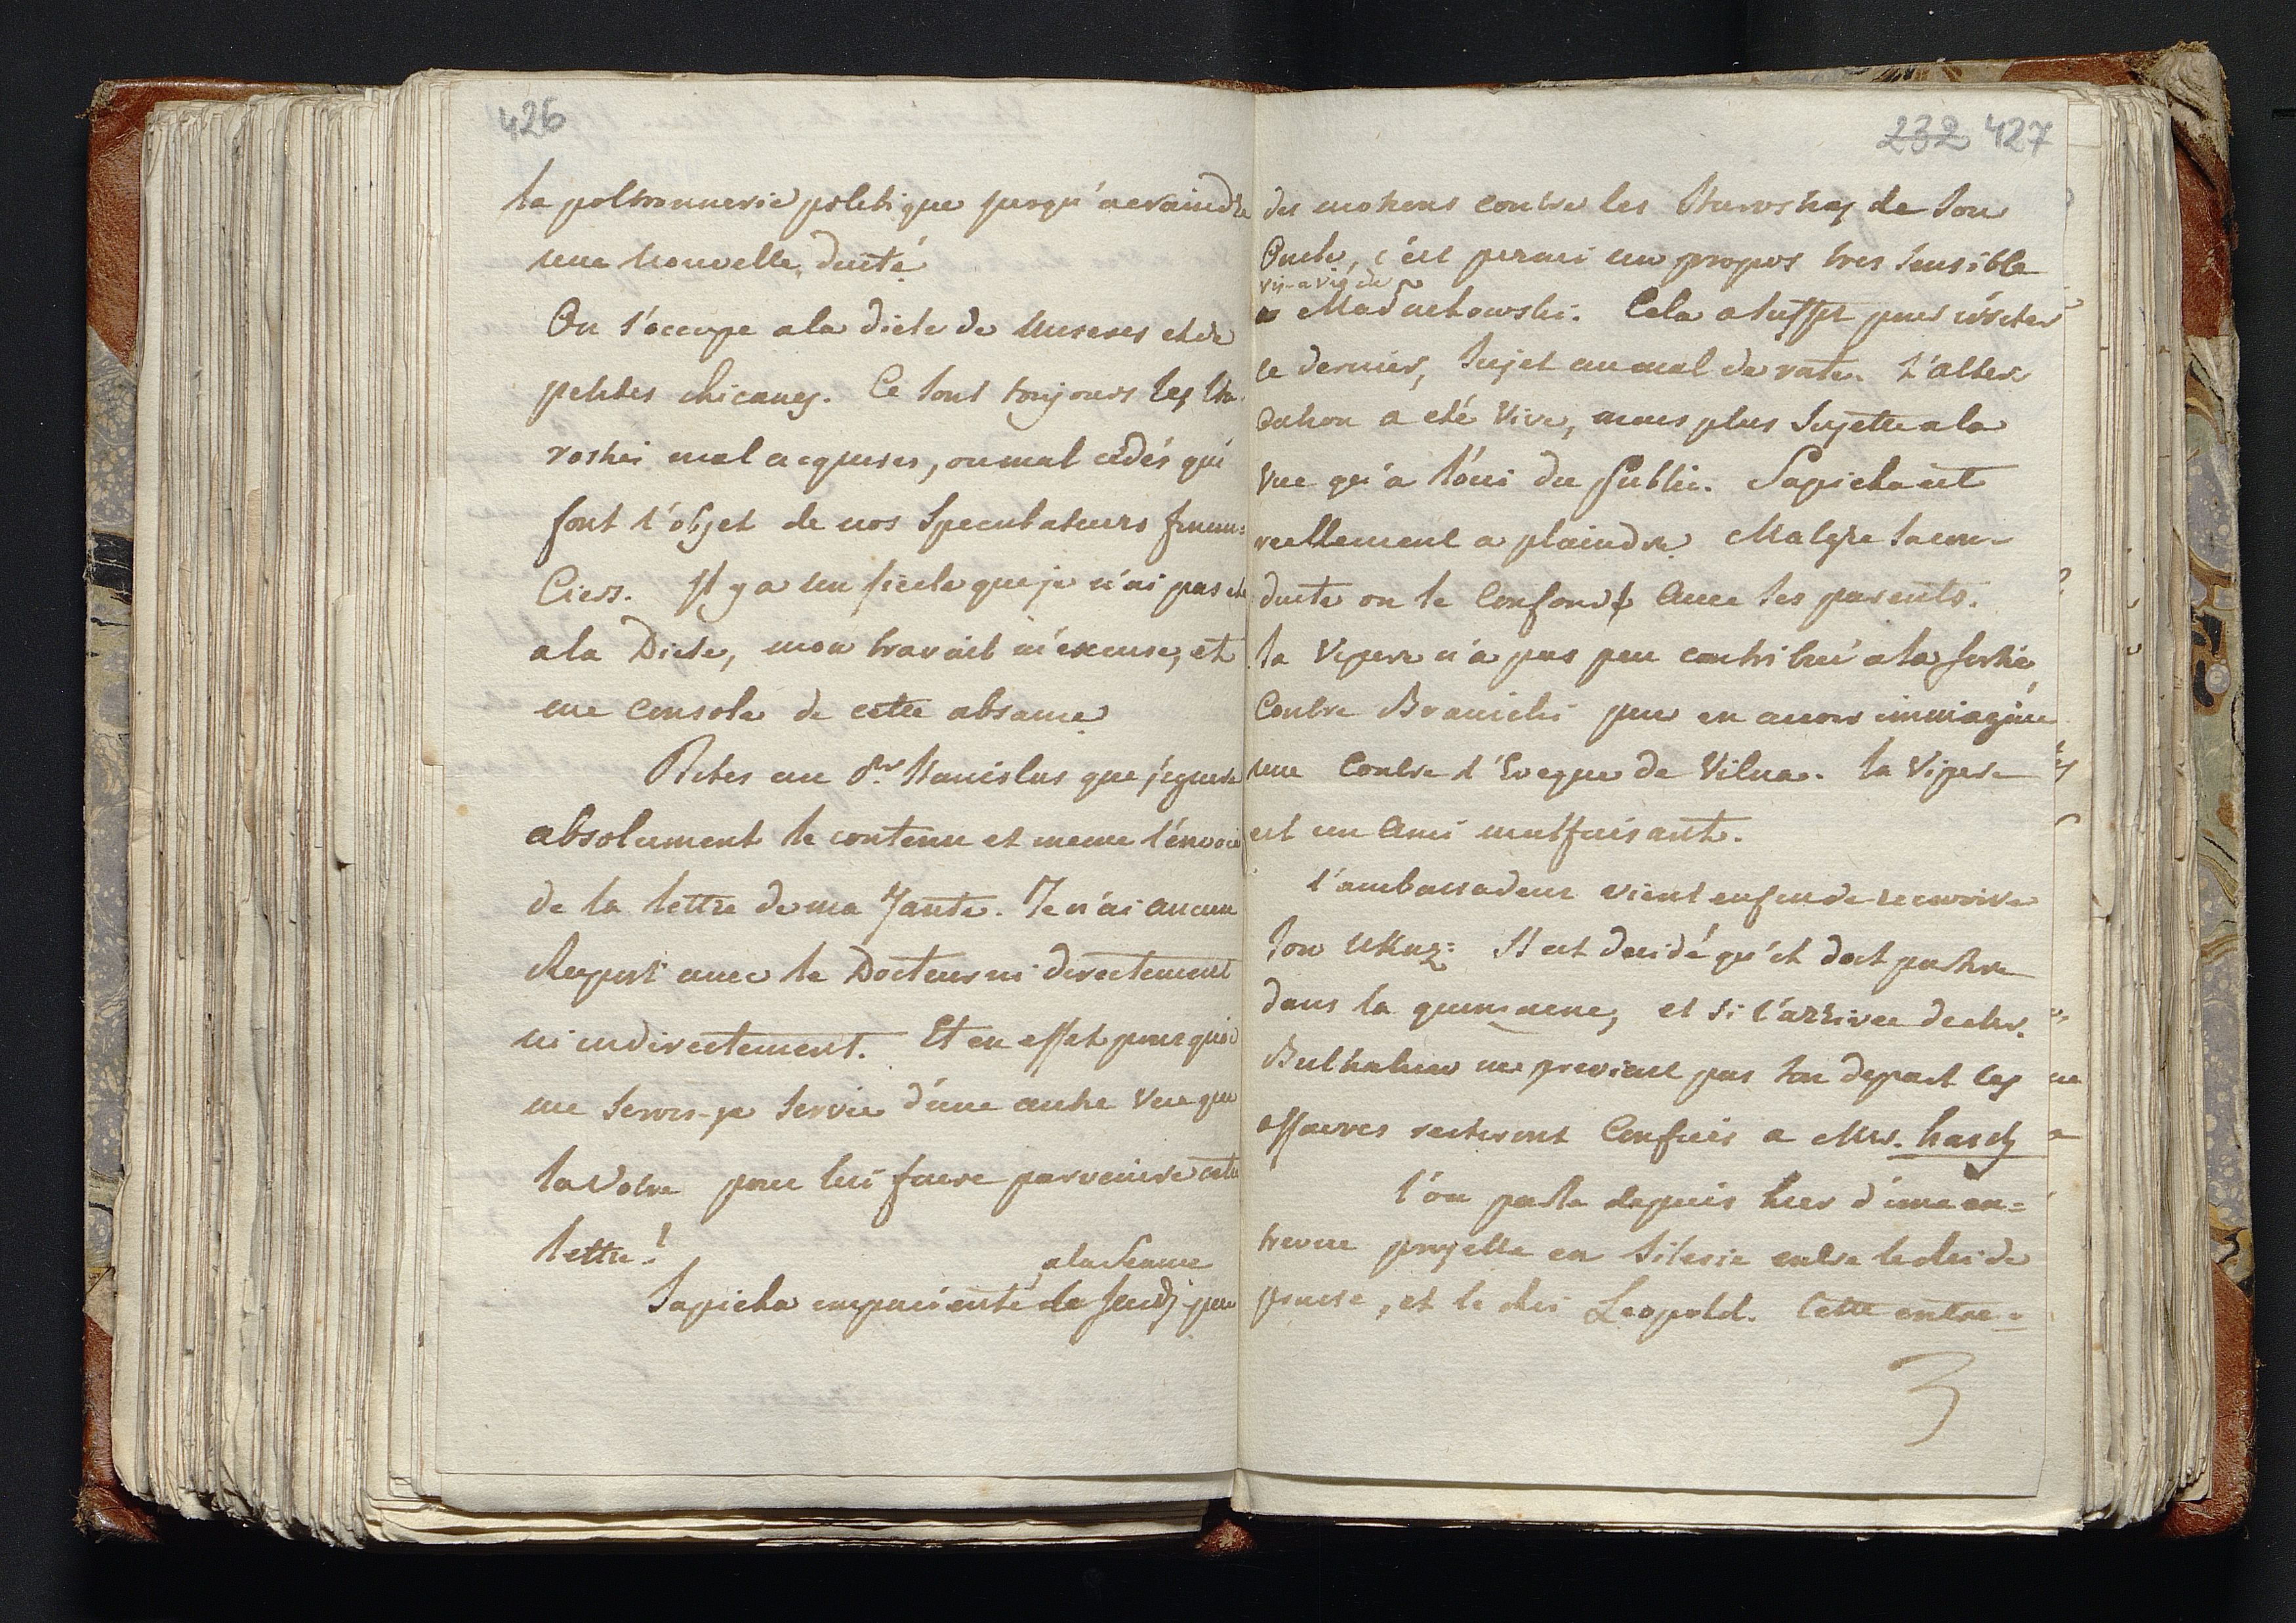 426
la poltronnerie politique jusqu'a craindre
une nouvelle diete
On s'occupe a la diete de miseres et de
petites chicanes. Ce sont toujours les sta
rosties mal acquises, ou mal cedés qui
font l'objet de nos Speculateurs finan=
Ciers. Il y a un siecle que je n'ai pas eté
a la Diete, mon travail m'excuse, et
me console de cette absence
Dites au Dr. Stanislas que j'ignore
absolument le contenu et meme l'envoie
de la lettre de ma Tante. Je n'ai aucun
Raport avec le Docteur ni directement
ni indirectement. Et en effet pourquoi
me serois-je servie d'une autre Vue que
la Votre pour lui faire parvenire cette
lettre!
a la Seance
Sapieha impacienté de Jeudi par
232 427
des motions contre les Starosties de Son
Oncle, s'est permi un propos tres sensible
vis-a-vis de
a Malachowski. Cela a suffit pour irriter
ce dernier, Sujet au mal de rate. L'alter
cation a eté Vive, mais plus Sujette a la
Vue qu'a l'oui du Public. Sapieha est
reellement a plaindre Malgre sa con-
duite on le Confond Avec ses parents.
la Vipere n'a pas peu contribué a la sortie
Contre Branicki pour en avoir immaginé
une Contre l'Eveque de Vilna. la Vipere
est un Ami malfaisant.
l'ambassadeur vient enfin de recevoire
son Ukaz: Il est decidé qu'il doit partire
dans la quinzaine, et si l'arrivee de Mr.
Bulhakow ne previent pas son depart les
affaires resteront Confiéés a Mrs.
l'on parle depuis hier d'une en=
trevue projetté en Silesie entre le Roi de
Prusse, et le Roi Leopold. Cette entre=
3